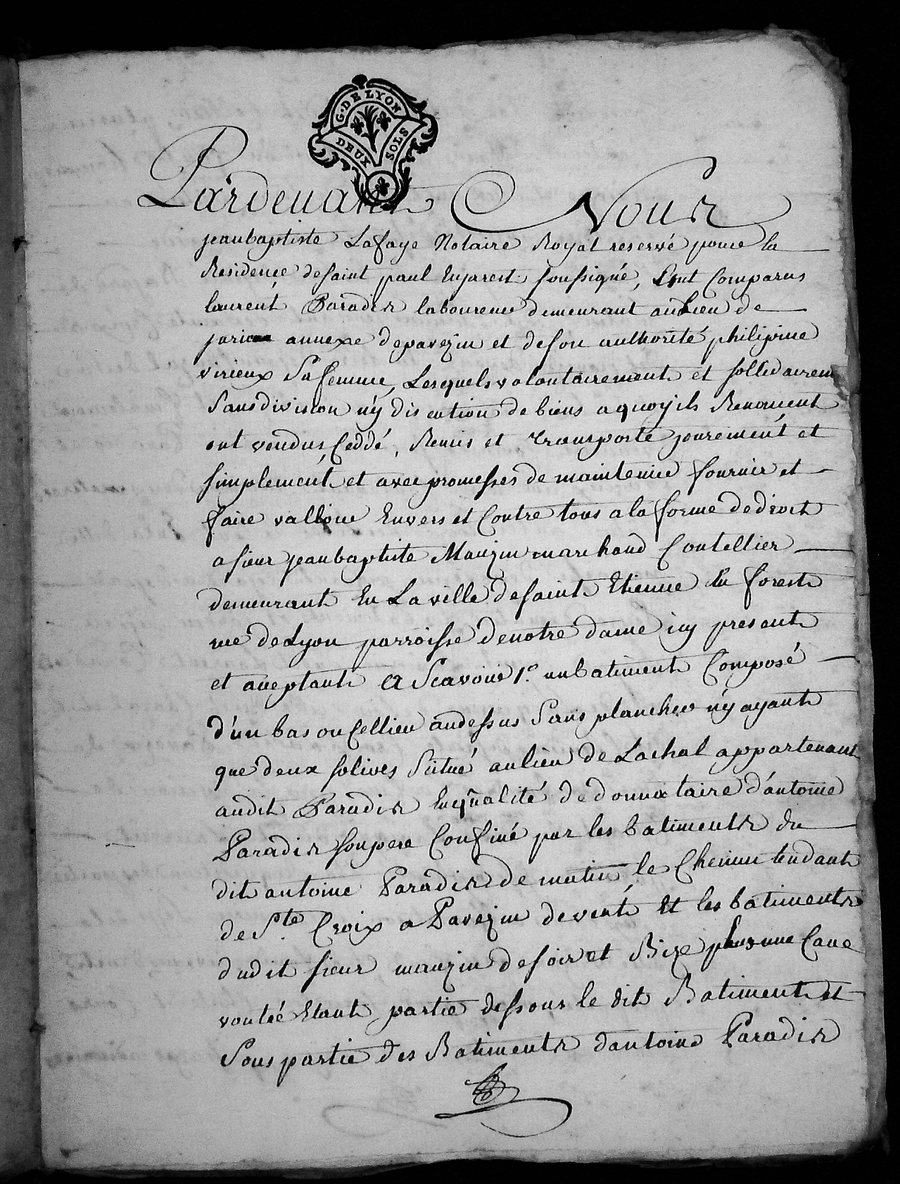 G. DE LYON
DEUX SOLS
Pardevant Nous
jeanbaptiste Lafaye Notaire Royal reservé pour la
Residence desaint paul Enjarest soussigné, sont Comparus
laurent Paradis laboureur demeurant au Lieu de
annexe depavezin et deson authorité philipine
virieux Sa femme, Lesquels volontairement et sollidairem
Sans division n'y discution de biens aquoy ils Renoncent
ont vendus, Ceddé, Remis et transporté purement et
simplement, et avec promesses de maintenir fournir et
faire valloir Envers et Contre tous a la forme de droit
a sieur jeanbaptiste Mauzin marchand Coutellier
demeurant En La ville de saint Etienne En forest
rue de Lyon parroisse de notre dame icy present
et aceptant A Scavoir 1.° un batiment Composé
d'un bas ou Cellier audessus Sans plancher n'y ayant
que deux solives Scitué au lieu de Lachal appartenant
audit Paradis Enqualité de donnataire d'antoine
Paradis son pere Confiné par les batiments du
dit antoine Paradis de matin, le Chemin tendant
de Ste. Croix a Pavezin de vent Et les batiments
dudit sieur mauzin de soir et Bize plus une Cave
voutée Etant partie dessous le dit Batiment Et
Sous partie des Batiments dantoine Paradis